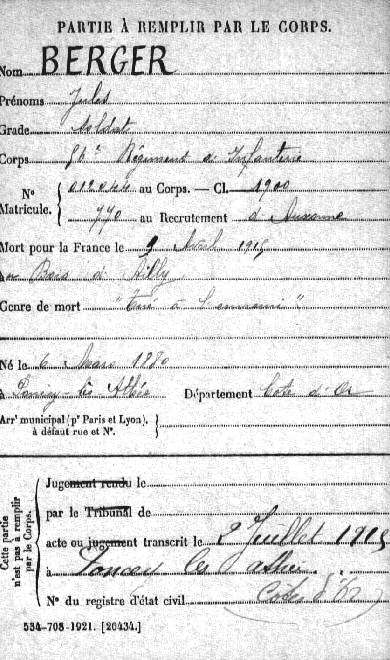 PARTIE À REMPLIR PAR LE CORPS.
Nom BERGER
Prénoms Jules
Grade Soldat
Corps Régiment d'Infanterie
N° Matricule. 012044 au Corps. — Cl. 1900
770 au Recrutement d'Auxonne
Mort pour la France le 9 Avril 1915
au Bois d'Ailly
Genre de mort "Tué à l'ennemi"
Né le 6 Mars 1880
à lès Athée Département Côte d'Or
Arr' municipal (p' Paris et Lyon),
à défaut rue et N°.
Cette partie
n'est pas à remplir
par le Corps.
Jugement rendu le
par le Tribunal de
acte ou jugement transcrit le 2 Juillet 1915
à Poncey les Athée
N° du registre d'état civil Côte d'Or
534-708-1921. [26434.]